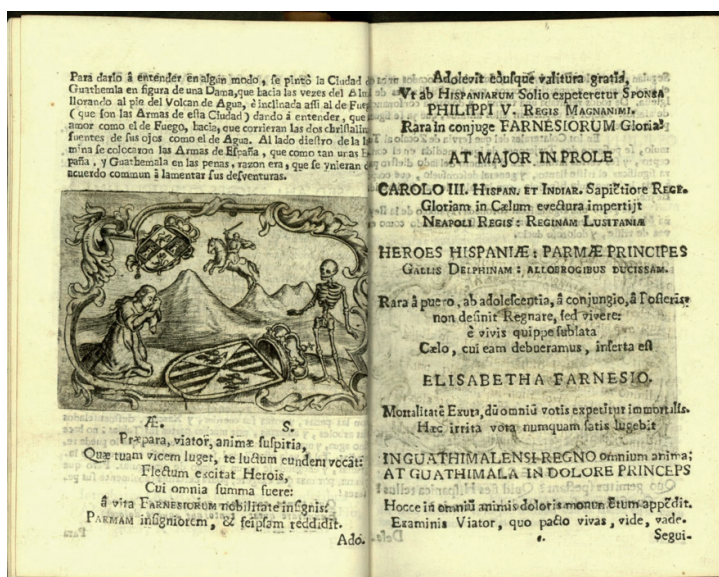 Para darlo â entender en algun modo, se pintô la Ciudad de
Guathemla en figura de una Dama, que hacia las vezes del Alma
llorando al pie del Volcan de Agua, ê inclinada assi al de Fuego
( que son las Armas de esta Ciudad ) dando â entender, que
amor como el de Fuego, hacia, que corrieran las dos christalinas
fuentes de sus ojos como el de Agua. Al lado diestro de la la-
mina se colocaron las Armas de España, que como tan unas Es-
paña, y Guathemala en las penas, razon era, que se vnieran de
acuerdo commun â lamentar sus desventuras.
Æ. S.
Præpara, viator, animæ suspiria,
Quæ tuam vicem luget, te luctum eundem vocât:
Flectum excitat Herois,
Cui omnia summa fuere:
â vita FARNESIORUM nobilitate insignis:
PARMAM insigniorem, & seipsam reddidit.
Ado-
Adolevit eôusque valitura gratia,
Vt ab HISPANIARUM Solio expeteretur SPONSA
PHILIPPI V. REGIS MAGNANIMI.
Rara in conjuge FARNESIORUM Gloria?
AT MAJOR IN PROLE
CAROLO III. HISPAN. ET INDIAR. Sapiẽtiore REGE.
Gloriam in Cælum evectura impertijt
NEAPOLI REGIS: REGINAM LUSITANIÆ
HEROES HISPANIÆ: PARMÆ PRINCIPES
GALLIS DELPHINAM: ALLOBROGIBUS DUCISSAM.
Rara â puero, ab adolescentia, â conjungio, â Posteris:
non desinit Regnare, sed vivere:
ê vivis quippe sublata
Cælo, cui eam debueramus, inserta est
ELISABETHA FARNESIO.
Mortalitatē Exuta, dū omniū votis expetitur immortalis.
Hæc irrita vota numquam satis lugebit
IN GUATHIMALENSI REGNO omnium anima;
AT GUATHIMALA IN DOLORE PRINCEPS
Hocce in omniū animis doloris monumẽtum appẽdit.
Examinis Viator, quo pacto vivas, vide, vade.
Segui-